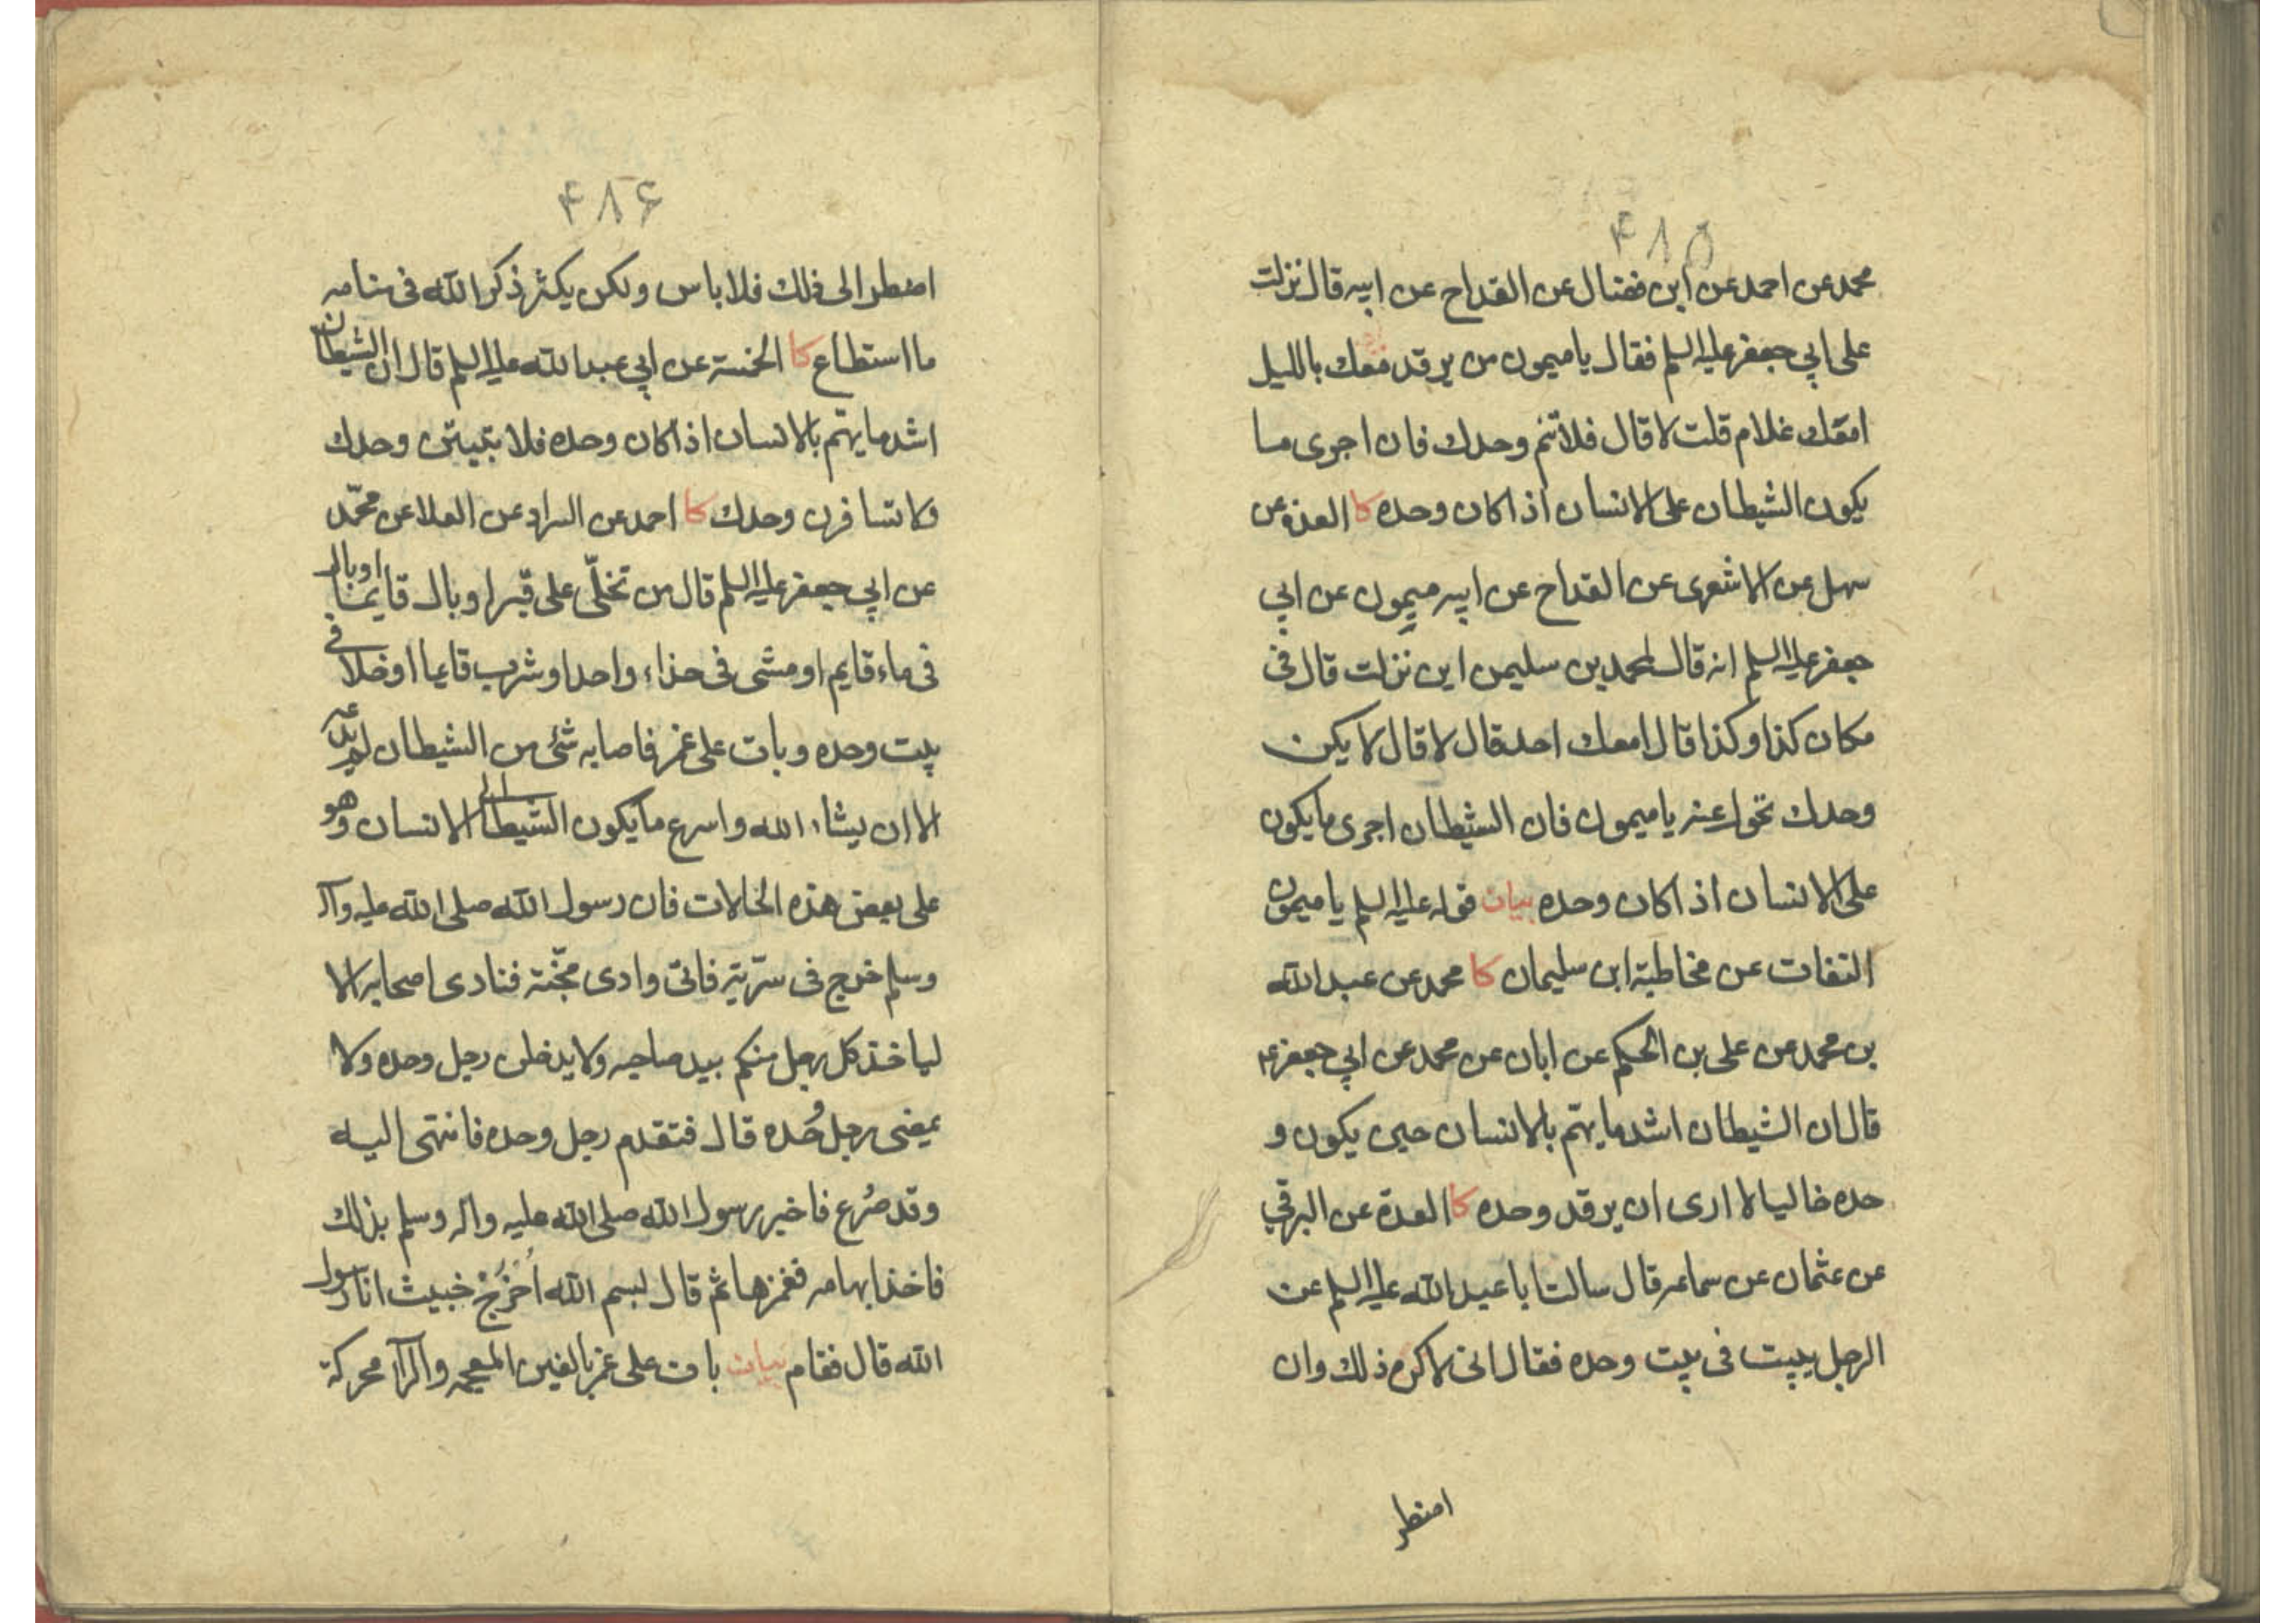 ۴۸۵
محمد عن احمد عن ابن فضال عن القداح عن ابيه قال نزلت
على ابي جعفر عليه السلم فقال يا ميمون من يرقد معك بالليل
امعك غلام قلت لا قال فلا تنم وحدك فان اجرى ما
يكون الشيطان على الانسان اذا كان وحده كا العدة عن
سهل عن الاشعرى عن القداح عن ابيه ميمون عن ابي
جعفر عليه السلم انه قال لمحمد بن سليمن اين نزلت قال فى
مكان كذا وكذا قال امعك احد قال لا قال لا يكن
وحدك تحول عنه يا ميمون فان الشيطان اجرى ما يكون
على الانسان اذا كان وحده بيان قوله عليه السلم يا ميمون
التفات عن مخاطبة ابن سليمان كا محمد عن عبد الله
بن محمد عن على بن الحكم عن ابان عن محمد عن ابي جعفر ع
قال ان الشيطان اشد ما يهتم بالانسان حين يكون و
حده خاليا لا ارى ان يرقد وحده كا العدة عن البرقي
عن عثمان عن سماعه قال سالت ابا عبد الله عليه السلم عن
الرجل يبيت فى بيت وحده فقال انى لاكره ذلك وان
اضطر
۴۸۶
اضطر الى ذلك فلا باس ولكن يكثر ذكر الله فى منامه
ما استطاع كا الخمسة عن ابي عبد الله عليه السلم قال ان الشيطان
اشد ما يهتم بالانسان اذا كان وحده فلا تبيتن وحدك
ولا تسافرن وحدك كا احمد عن السراد عن العلا عن محمّد
عن ابي جعفر عليه السلم قال من تخلّى على قبر او بال قايما او بال
فى ماء قايم او مشى فى حذاء واحد او شرب قايما او خلا فى
بيت وحده وبات على غمر فاصابه شئ من الشيطان لم يدعه
الا ان يشاء الله واسرع ما يكون الشيطان الى الانسان وهو
على بعض هذه الحالات فان رسول الله صلى الله عليه وآله
وسلم خرج فى سرّية فاتى وادى مجّنة فنادى اصحابه الا
لياخذ كل رجل منكم بيد صاحبه ولا يدخلن رجل وحده ولا
يمضى رجل وحده قال فتقدم رجل وحده فانتهى اليه
وقد صُرع فاخبر رسول الله صلى الله عليه واله وسلم بذلك
فاخذ ابهامه فغمزها ثم قال بسم الله اخرج خبيث انا رسول
الله قال فقام بيان بات على غمر بالغين المعجمه والرآ محركة